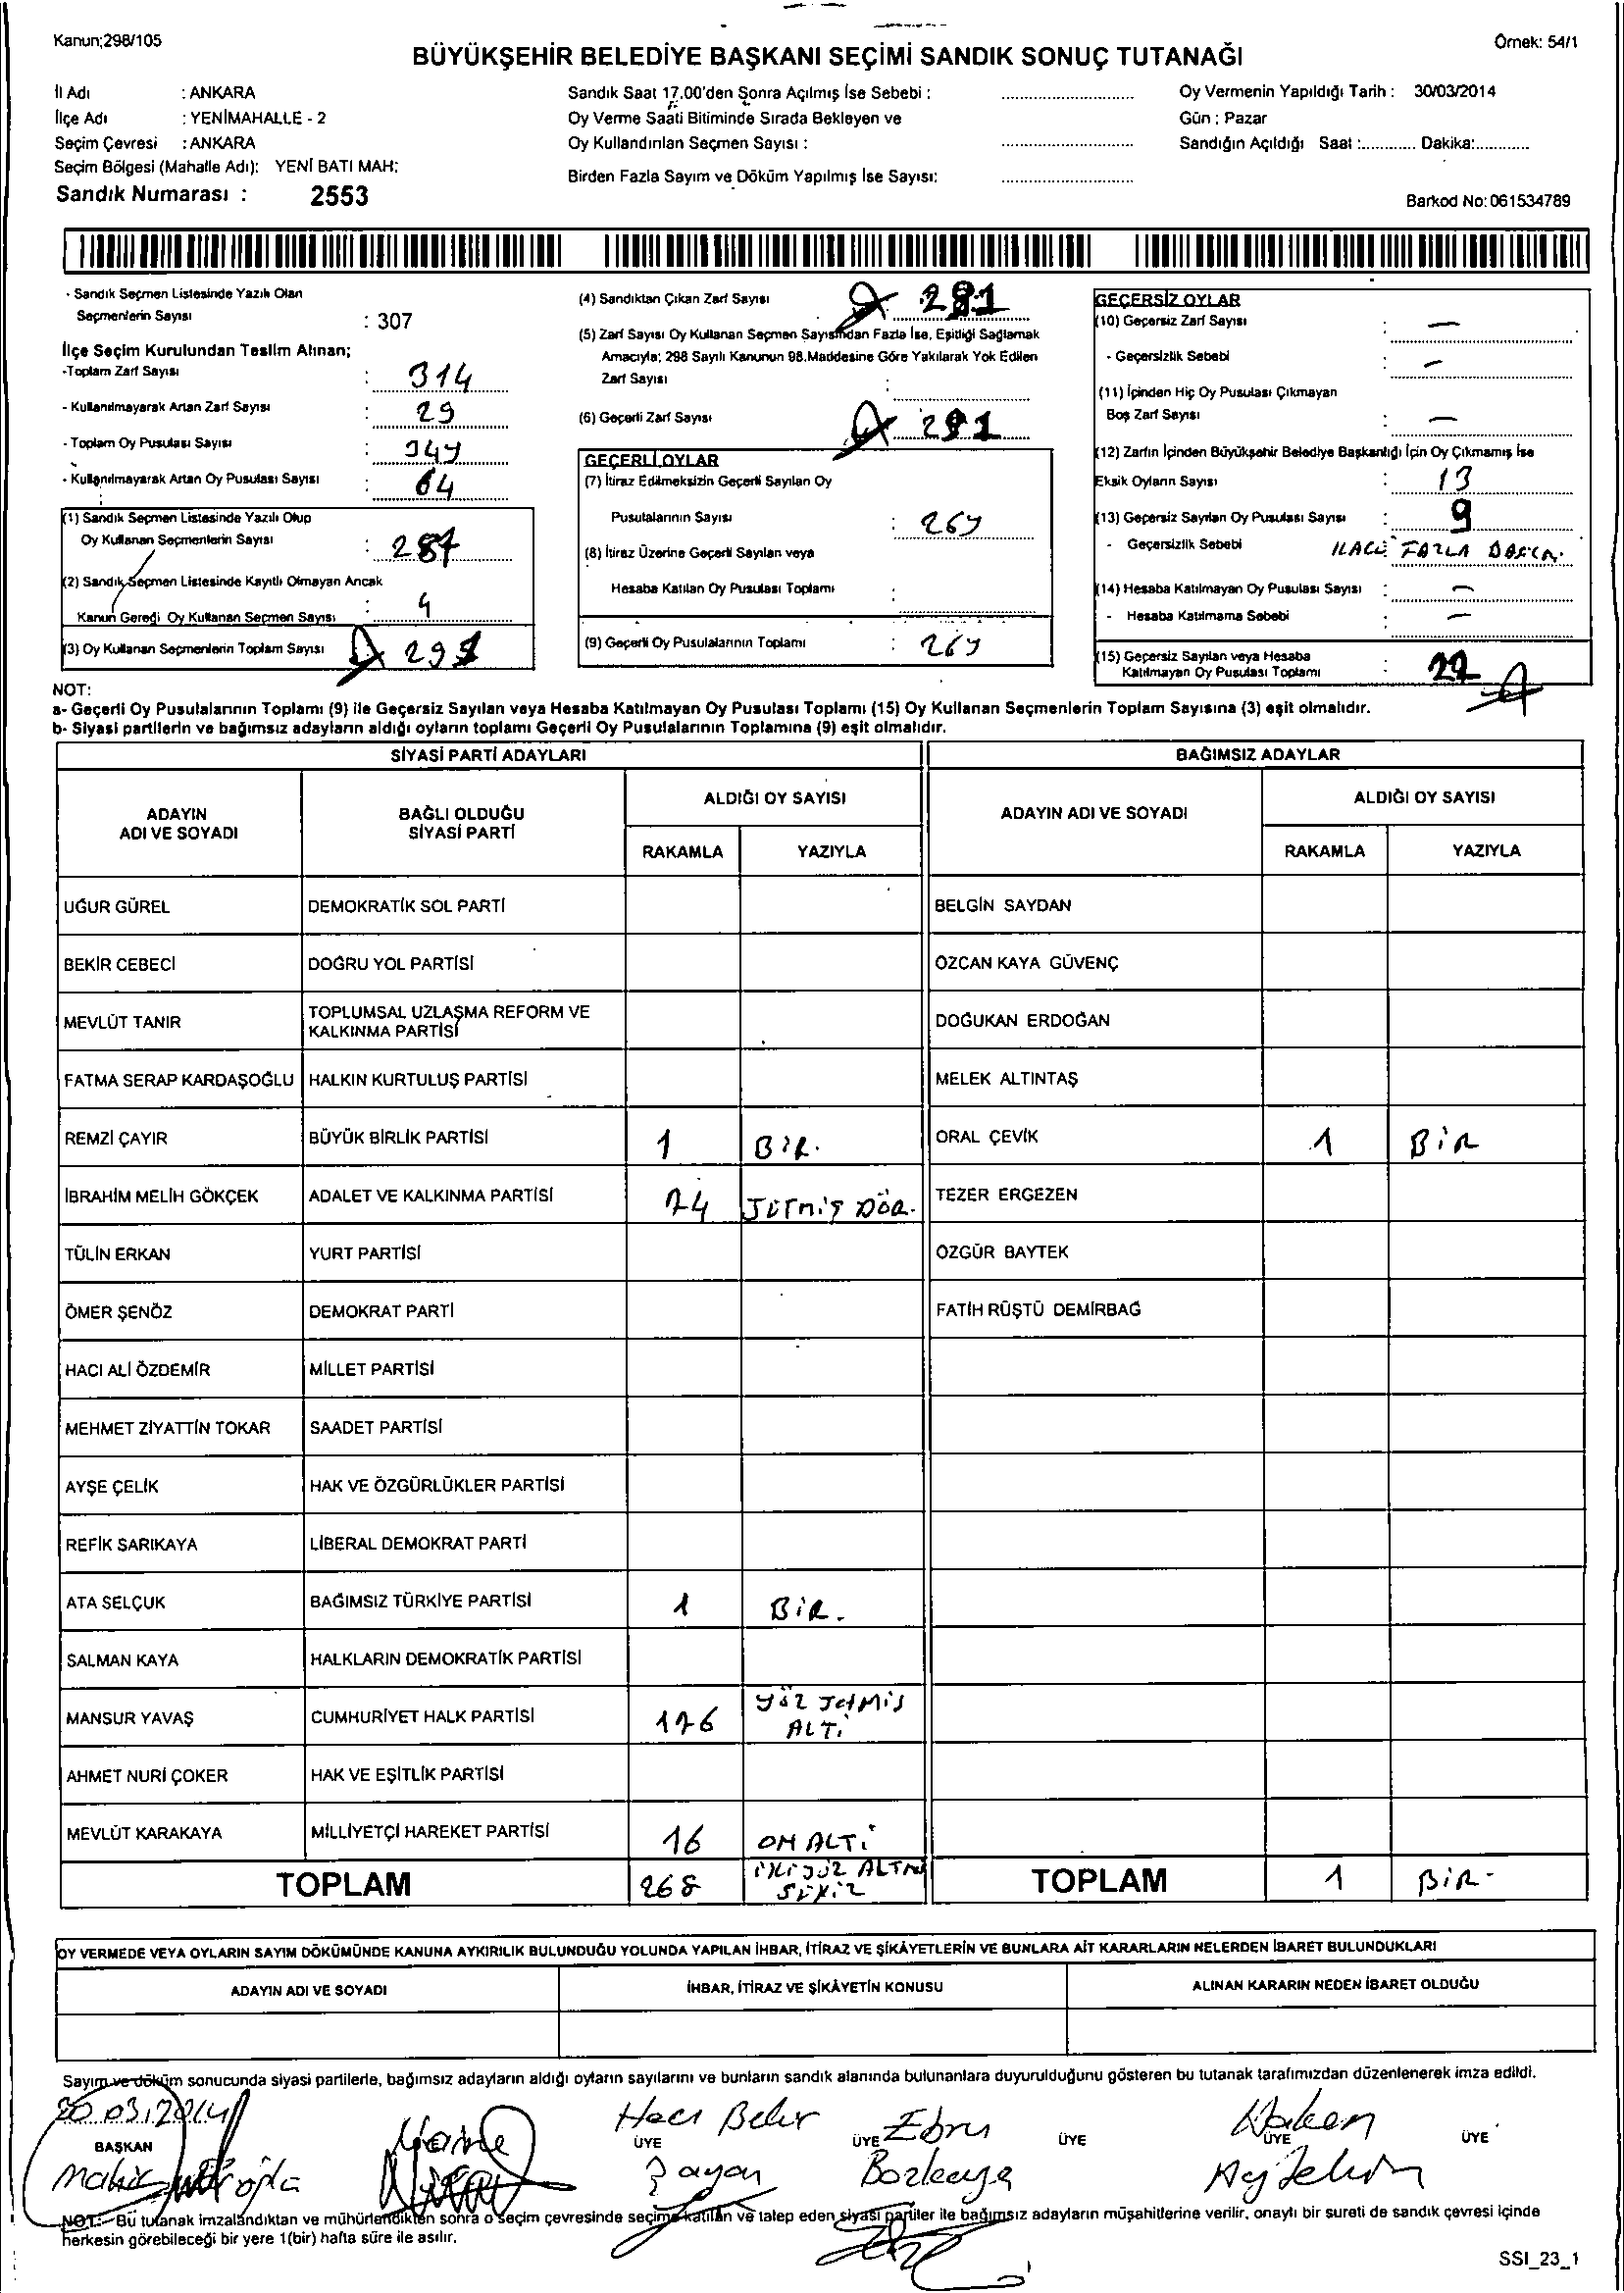 Kanun;298/105
Örnek: 54/1
BÜYÜKŞEHİR BELEDİYE BAŞKANI SEÇİMİ SANDIK SONUÇ TUTANAĞI
İl Adı : ANKARA
İlçe Adı : YENİMAHALLE - 2
Seçim Çevresi : ANKARA
Seçim Bölgesi (Mahalle Adı): YENİ BATI MAH;
Sandık Numarası : 2553
Sandık Saat 17.00'den Sonra Açılmış İse Sebebi :
Oy Verme Saati Bitiminde Sırada Bekleyen ve
Oy Kullandırılan Seçmen Sayısı :
Birden Fazla Sayım ve Döküm Yapılmış İse Sayısı:
Oy Vermenin Yapıldığı Tarih : 30/03/2014
Gün : Pazar
Sandığın Açıldığı Saat :............ Dakika:............
Barkod No: 061534789
- Sandık Seçmen Listesinde Yazılı Olan
Seçmenlerin Sayısı : 307
İlçe Seçim Kurulundan Teslim Alınan;
-Toplam Zarf Sayısı : 314
- Kullanılmayarak Artan Zarf Sayısı : 29
- Toplam Oy Pusulası Sayısı : 344
- Kullanılmayarak Artan Oy Pusulası Sayısı : 64
(1) Sandık Seçmen Listesinde Yazılı Olup
Oy Kullanan Seçmenlerin Sayısı : 287
(2) Sandık Seçmen Listesinde Kayıtlı Olmayan Ancak
Kanun Gereği Oy Kullanan Seçmen Sayısı : 4
(3) Oy Kullanan Seçmenlerin Toplam Sayısı 291
(4) Sandıktan Çıkan Zarf Sayısı 291
(5) Zarf Sayısı Oy Kullanan Seçmen Sayısından Fazla İse, Eşitliği Sağlamak
Amacıyla; 298 Sayılı Kanunun 98.Maddesine Göre Yakılarak Yok Edilen
Zarf Sayısı :
(6) Geçerli Zarf Sayısı 291
GEÇERLİ OYLAR
(7) İtiraz Edilmeksizin Geçerli Sayılan Oy
Pusulalarının Sayısı : 269
(8) İtiraz Üzerine Geçerli Sayılan veya
Hesaba Katılan Oy Pusulası Toplamı :
(9) Geçerli Oy Pusulalarının Toplamı : 269
GEÇERSİZ OYLAR
(10) Geçersiz Zarf Sayısı : —
- Geçersizlik Sebebi : —
(11) İçinden Hiç Oy Pusulası Çıkmayan
Boş Zarf Sayısı : —
(12) Zarfın İçinden Büyükşehir Belediye Başkanlığı İçin Oy Çıkmamış İse
Eksik Oyların Sayısı : 13
(13) Geçersiz Sayılan Oy Pusulası Sayısı : 9
- Geçersizlik Sebebi FAZLA
(14) Hesaba Katılmayan Oy Pusulası Sayısı : —
- Hesaba Katılmama Sebebi : —
(15) Geçersiz Sayılan veya Hesaba
Katılmayan Oy Pusulası Toplamı : 22
NOT:
a- Geçerli Oy Pusulalarının Toplamı (9) ile Geçersiz Sayılan veya Hesaba Katılmayan Oy Pusulası Toplamı (15) Oy Kullanan Seçmenlerin Toplam Sayısına (3) eşit olmalıdır.
b- Siyasi partilerin ve bağımsız adayların aldığı oyların toplamı Geçerli Oy Pusulalarının Toplamına (9) eşit olmalıdır.
SİYASİ PARTİ ADAYLARI
BAĞIMSIZ ADAYLAR
ADAYIN ADI VE SOYADI
BAĞLI OLDUĞU SİYASİ PARTİ
ALDIĞI OY SAYISI
RAKAMLA YAZIYLA
ADAYIN ADI VE SOYADI
ALDIĞI OY SAYISI
RAKAMLA YAZIYLA
UĞUR GÜREL DEMOKRATİK SOL PARTİ BELGİN SAYDAN
BEKİR CEBECİ DOĞRU YOL PARTİSİ ÖZCAN KAYA GÜVENÇ
MEVLÜT TANIR TOPLUMSAL UZLAŞMA REFORM VE KALKINMA PARTİSİ DOĞUKAN ERDOĞAN
FATMA SERAP KARDAŞOĞLU HALKIN KURTULUŞ PARTİSİ MELEK ALTINTAŞ
REMZİ ÇAYIR BÜYÜK BİRLİK PARTİSİ 1 BİR. ORAL ÇEVİK 1 BİR
İBRAHİM MELİH GÖKÇEK ADALET VE KALKINMA PARTİSİ 74 JETMİŞ DÖR. TEZER ERGEZEN
TÜLİN ERKAN YURT PARTİSİ ÖZGÜR BAYTEK
ÖMER ŞENÖZ DEMOKRAT PARTİ FATİH RÜŞTÜ DEMİRBAĞ
HACI ALİ ÖZDEMİR MİLLET PARTİSİ
MEHMET ZİYATTİN TOKAR SAADET PARTİSİ
AYŞE ÇELİK HAK VE ÖZGÜRLÜKLER PARTİSİ
REFİK SARIKAYA LİBERAL DEMOKRAT PARTİ
ATA SELÇUK BAĞIMSIZ TÜRKİYE PARTİSİ 1 BİR.
SALMAN KAYA HALKLARIN DEMOKRATİK PARTİSİ
MANSUR YAVAŞ CUMHURİYET HALK PARTİSİ 176 YÜZ JETMİŞ ALTI
AHMET NURİ ÇOKER HAK VE EŞİTLİK PARTİSİ
MEVLÜT KARAKAYA MİLLİYETÇİ HAREKET PARTİSİ 16 ON ALTI
TOPLAM 268 İKİ JÜZ ALTMIŞ SEKİZ TOPLAM 1 BİR-
OY VERMEDE VEYA OYLARIN SAYIM DÖKÜMÜNDE KANUNA AYKIRILIK BULUNDUĞU YOLUNDA YAPILAN İHBAR, İTİRAZ VE ŞİKÂYETLERİN VE BUNLARA AİT KARARLARIN NELERDEN İBARET BULUNDUKLARI
ADAYIN ADI VE SOYADI İHBAR, İTİRAZ VE ŞİKÂYETİN KONUSU ALINAN KARARIN NEDEN İBARET OLDUĞU
Sayım ve döküm sonucunda siyasi partilerle, bağımsız adayların aldığı oyların sayılarını ve bunların sandık alanında bulunanlara duyurulduğunu gösteren bu tutanak tarafımızdan düzenlenerek imza edildi.
30.03.2014
Hacı Bekir Ebru Hakan
BAŞKAN ÜYE ÜYE ÜYE ÜYE ÜYE
Bozkaya
NOT:- Bu tutanak imzalandıktan ve mühürlendikten sonra o seçim çevresinde seçime katılan ve talep eden siyasi partiler ile bağımsız adayların müşahitlerine verilir, onaylı bir sureti de sandık çevresi içinde
herkesin görebileceği bir yere 1(bir) hafta süre ile asılır.
SSI_23_1